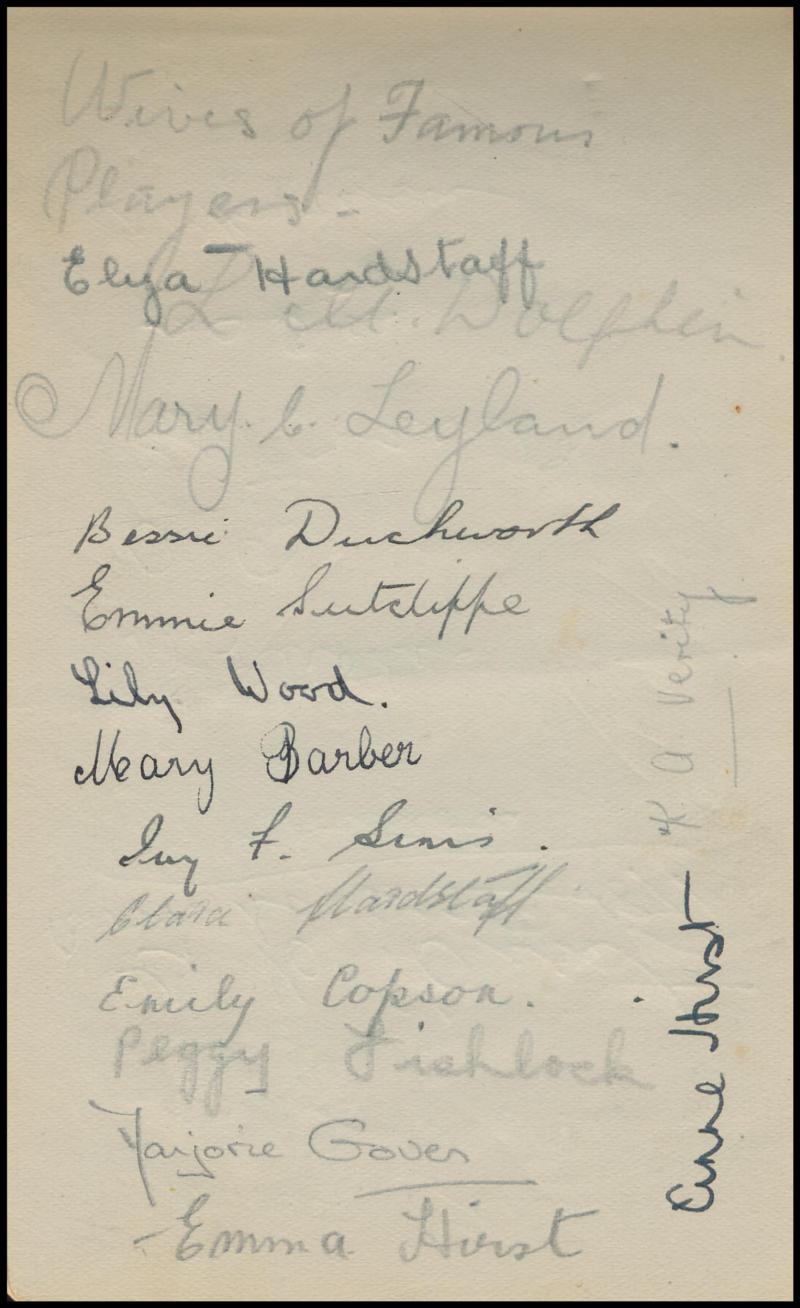 Wives of Famous
Players -
Eliza Hardstaff
L. M. Dolphin.
Mary C. Leyland.
Bessie Duckworth
Emmie Sutcliffe
Lily Wood.
Mary Barber
Ivy F. Sims.
Clara Hardstaff
Emily Copson.
Peggy Fishlock
Marjorie Gover
Emma Hirst
K A Verity
Anne Hurst